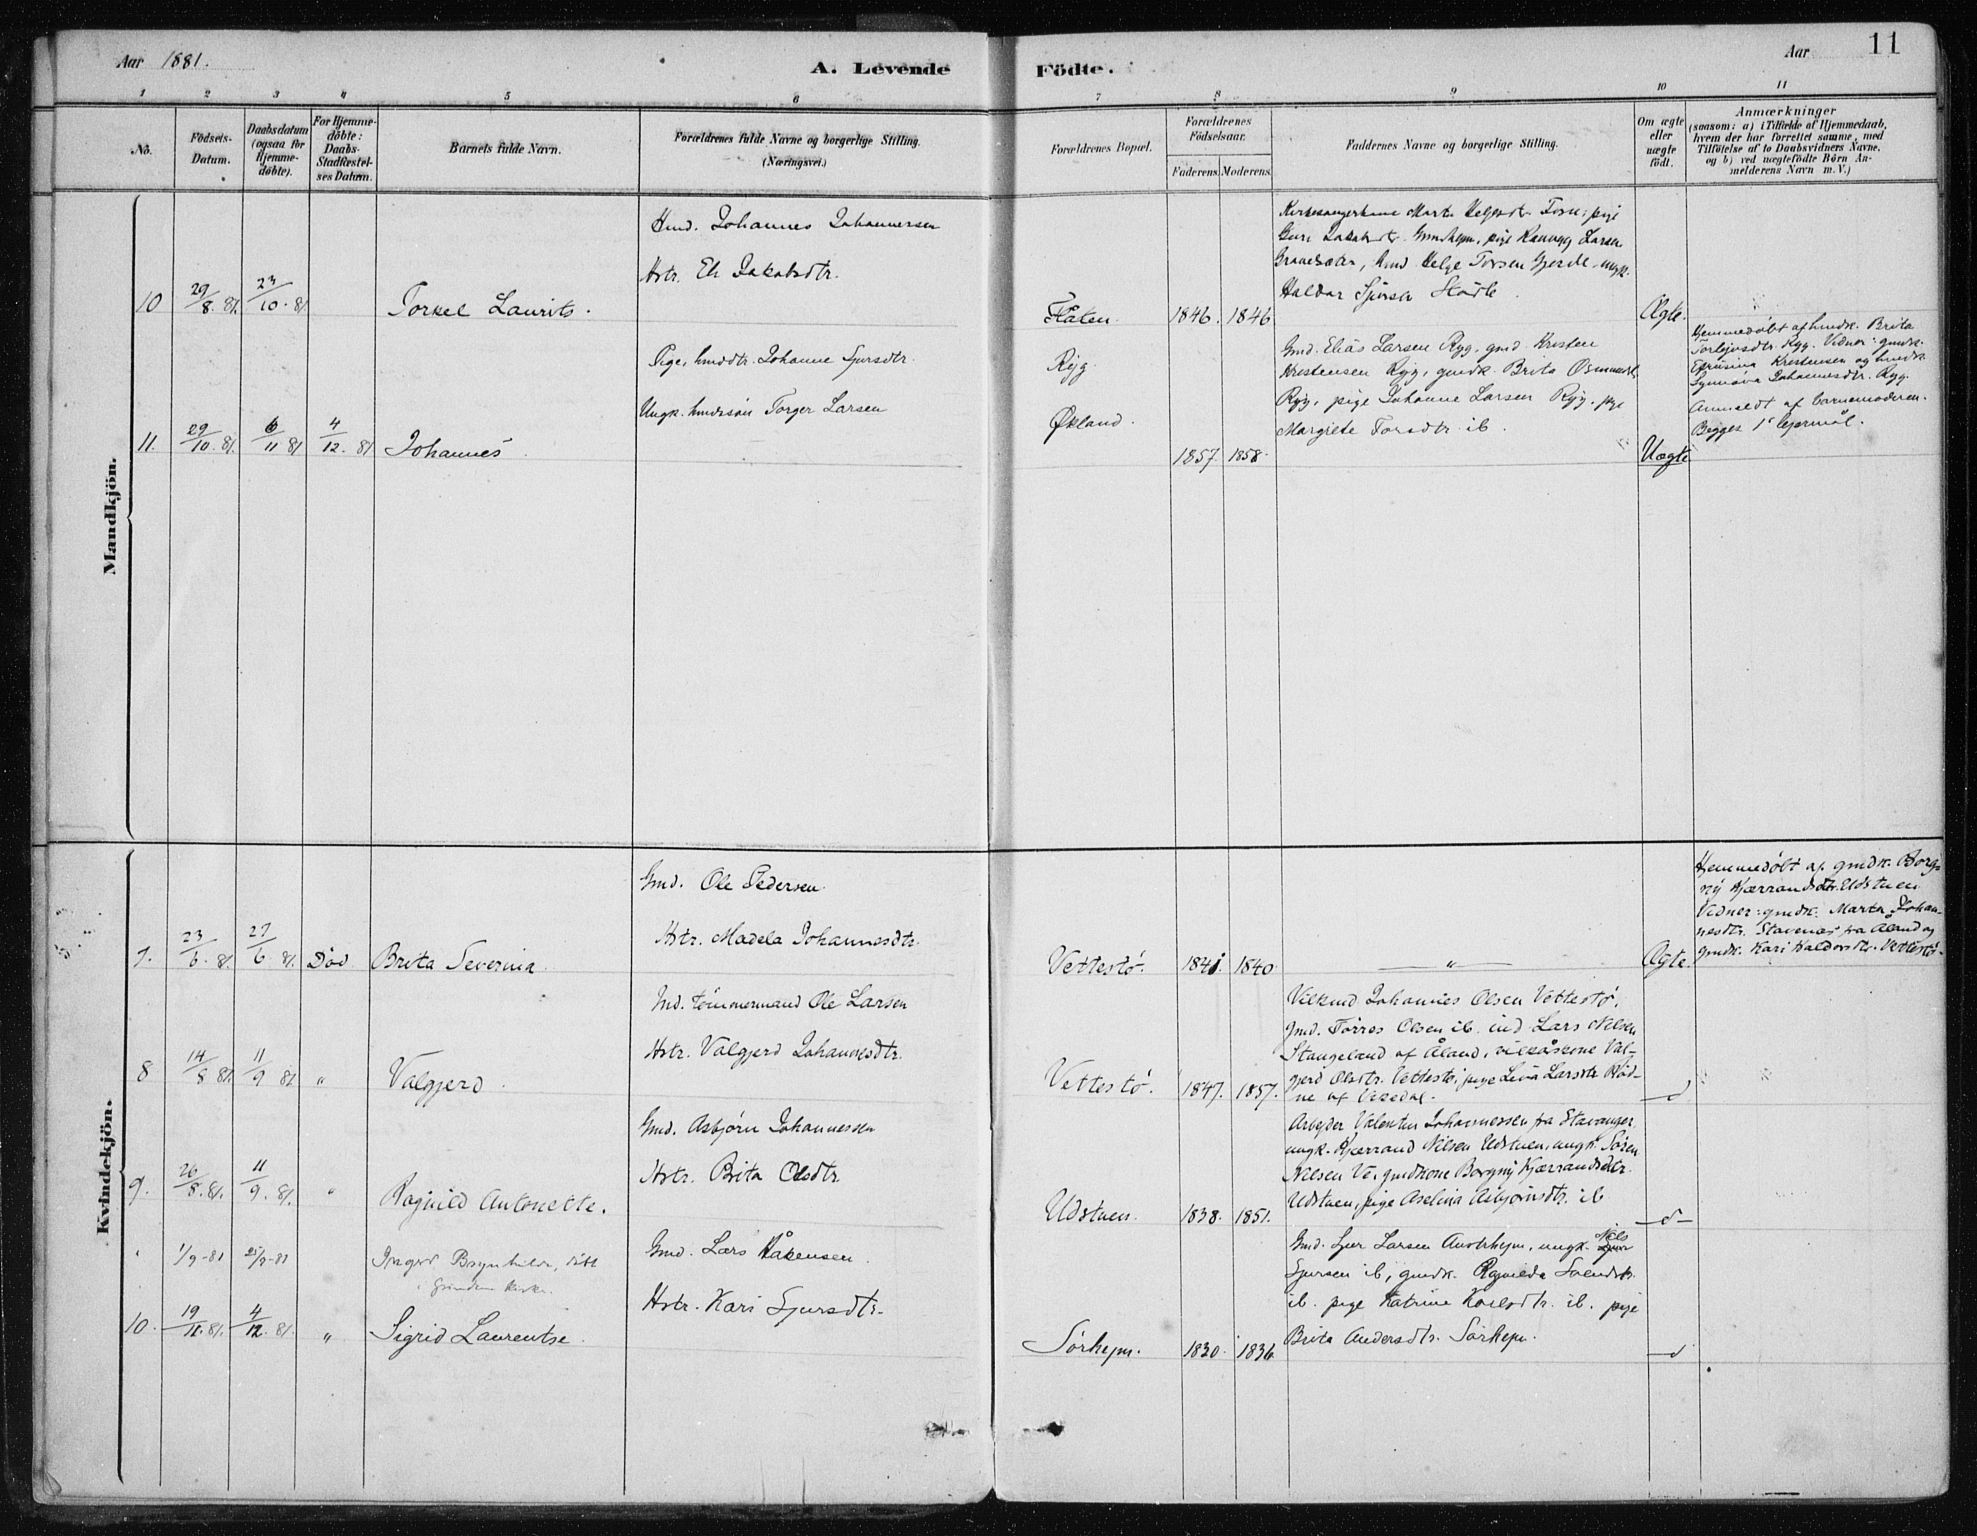 Aar 1881.
A. Levende
Födte.
Aar
11
1 2 3 4 5 6 7 8 9 10 11
No.
Födsels-
Datum.
Daabsdatum
(ogsaa for
Hjemme-
döbte).
For Hjemme-
döbte:
Daabs-
Stadfæstel-
ses Datum.
Barnets fulde Navn.
Forældrenes fulde Navne og borgerlige Stilling.
(Næringsvei.)
Forældrenes Bopæl.
Forældrenes
Födselsaar.
Faderens. Moderens.
Faddernes Navne og borgerlige Stilling.
Om ægte
eller
uægte
födt.
Anmærkninger
(saasom: a) i Tilfælde af Hjemmedaab,
hvem der har forrettet samme, med
Tilföielse af to Daabsvidners Navne,
og b) ved uægtefödte Börn An-
melderens Navn m. V.)
Mandkjön.
10 29/8.81. 23/10.81. Torkel Laurits.
Hmd. Johannes Johannessen
Hstr. Eli Jakobsdtr.
Flåten. 1846. 1846
Larsen
hmd Helge Torsen Gjerde
Ægte.
11. 29/10.81. 6/11 81 4/12.81 Johannes
Pige, hmddtr. Johanne Sjursdtr.
Ungk. hmdssøn Torger Larsen
Ryg
Økland.
1857. 1858.
Gmd. Elias Larsen Ryg, gmd. Kristen
Kristensen Ryg, gmdk. Brita Osmundst.
Ryg, pige Johanne Larsen Ryg, pige
Margrete Torsdtr. ib.
Uægte
Hjemmedøbt af hmdk. Brita
Torleivsdtr. Ryg. Vidner: gmdk.
Kristensen og hmdk.
Synnøva Johannesdtr. Ryg.
Anmeldt af barnemoderen.
Begges 1ste lejermål.
Kvindekjön.
7. 23/6.81. 27/6.81. Död Brita Severina.
Gmd. Ole Pedersen.
Hstr. Madela Johannesdtr.
Vettestø. 1841. 1840.
— " —
Ægte.
Hjemmedøbt af gmdk. Borg-
ny Kjærrandsdtr. Udstuen
Vidner: gmdk. Marta Johan-
nesdtr. Stavenæs fra Åland og
gmdk. Kari Haldorsdtr. Vettestø.
8 14/8 81. 11/9 81 " Valgjerd.
Ind. tömmermand Ole Larsen
Hstr. Valgjerd Johannesdtr.
Vettestø. 1847. 1857.
Vilkmd Johannes Olsen Vettestø,
gmd. Torres Olsen ib. ind Lars Nilsen
Stangeland af Åland, vilkårskone Val-
gjerd Olsdtr. Vettestø, pige Lina Larsdtr Rød-
ne af Vikedal.
—d
9. 26/8.81. 11/9.81. " Ragnild Antonette.
Gmd. Asbjørn Johannessen
Hstr. Brita Olsdtr.
Udstuen. 1838. 1851.
Arbejder Valentin Johannessen fra Stavanger,
ungk. Kjærrand Nilsen Udstuen, ungk. Sören
Nilsen Ve, gmdkone Borgny Kjærrandsdtr.
Udstuen, pige Aselina Asbjørnsdtr. ib
—d—
" 1/9-81 25/9-81 " Inger Brynhilda, døbt
i Grindem kirke.
10. 19/11.81. 4/12.81. " Sigrid Laurentse.
Gmd. Lars Håkensen
Hstr. Kari Sjursdtr.
Sørhejm. 1830. 1836.
Gmd. Sjur Larsen Austrhejm, ungk. Nils
Sjursen ib, gmdk. Ragnilda
ib. pige Katrine Karlsdtr. ib. pige
Brita Andersdtr. Sørhejm.
—d